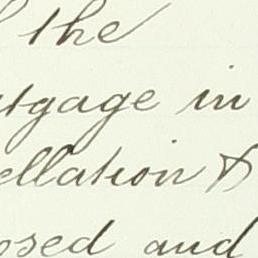 the
tgage in
ellation &
osed and